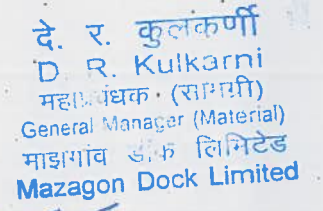 दे. र. कुलकर्णी
D. R. Kulkarni
महाप्रबंधक (सामग्री)
General Manager (Material)
माझगांव डॉक लिमिटेड
Mazagon Dock Limited